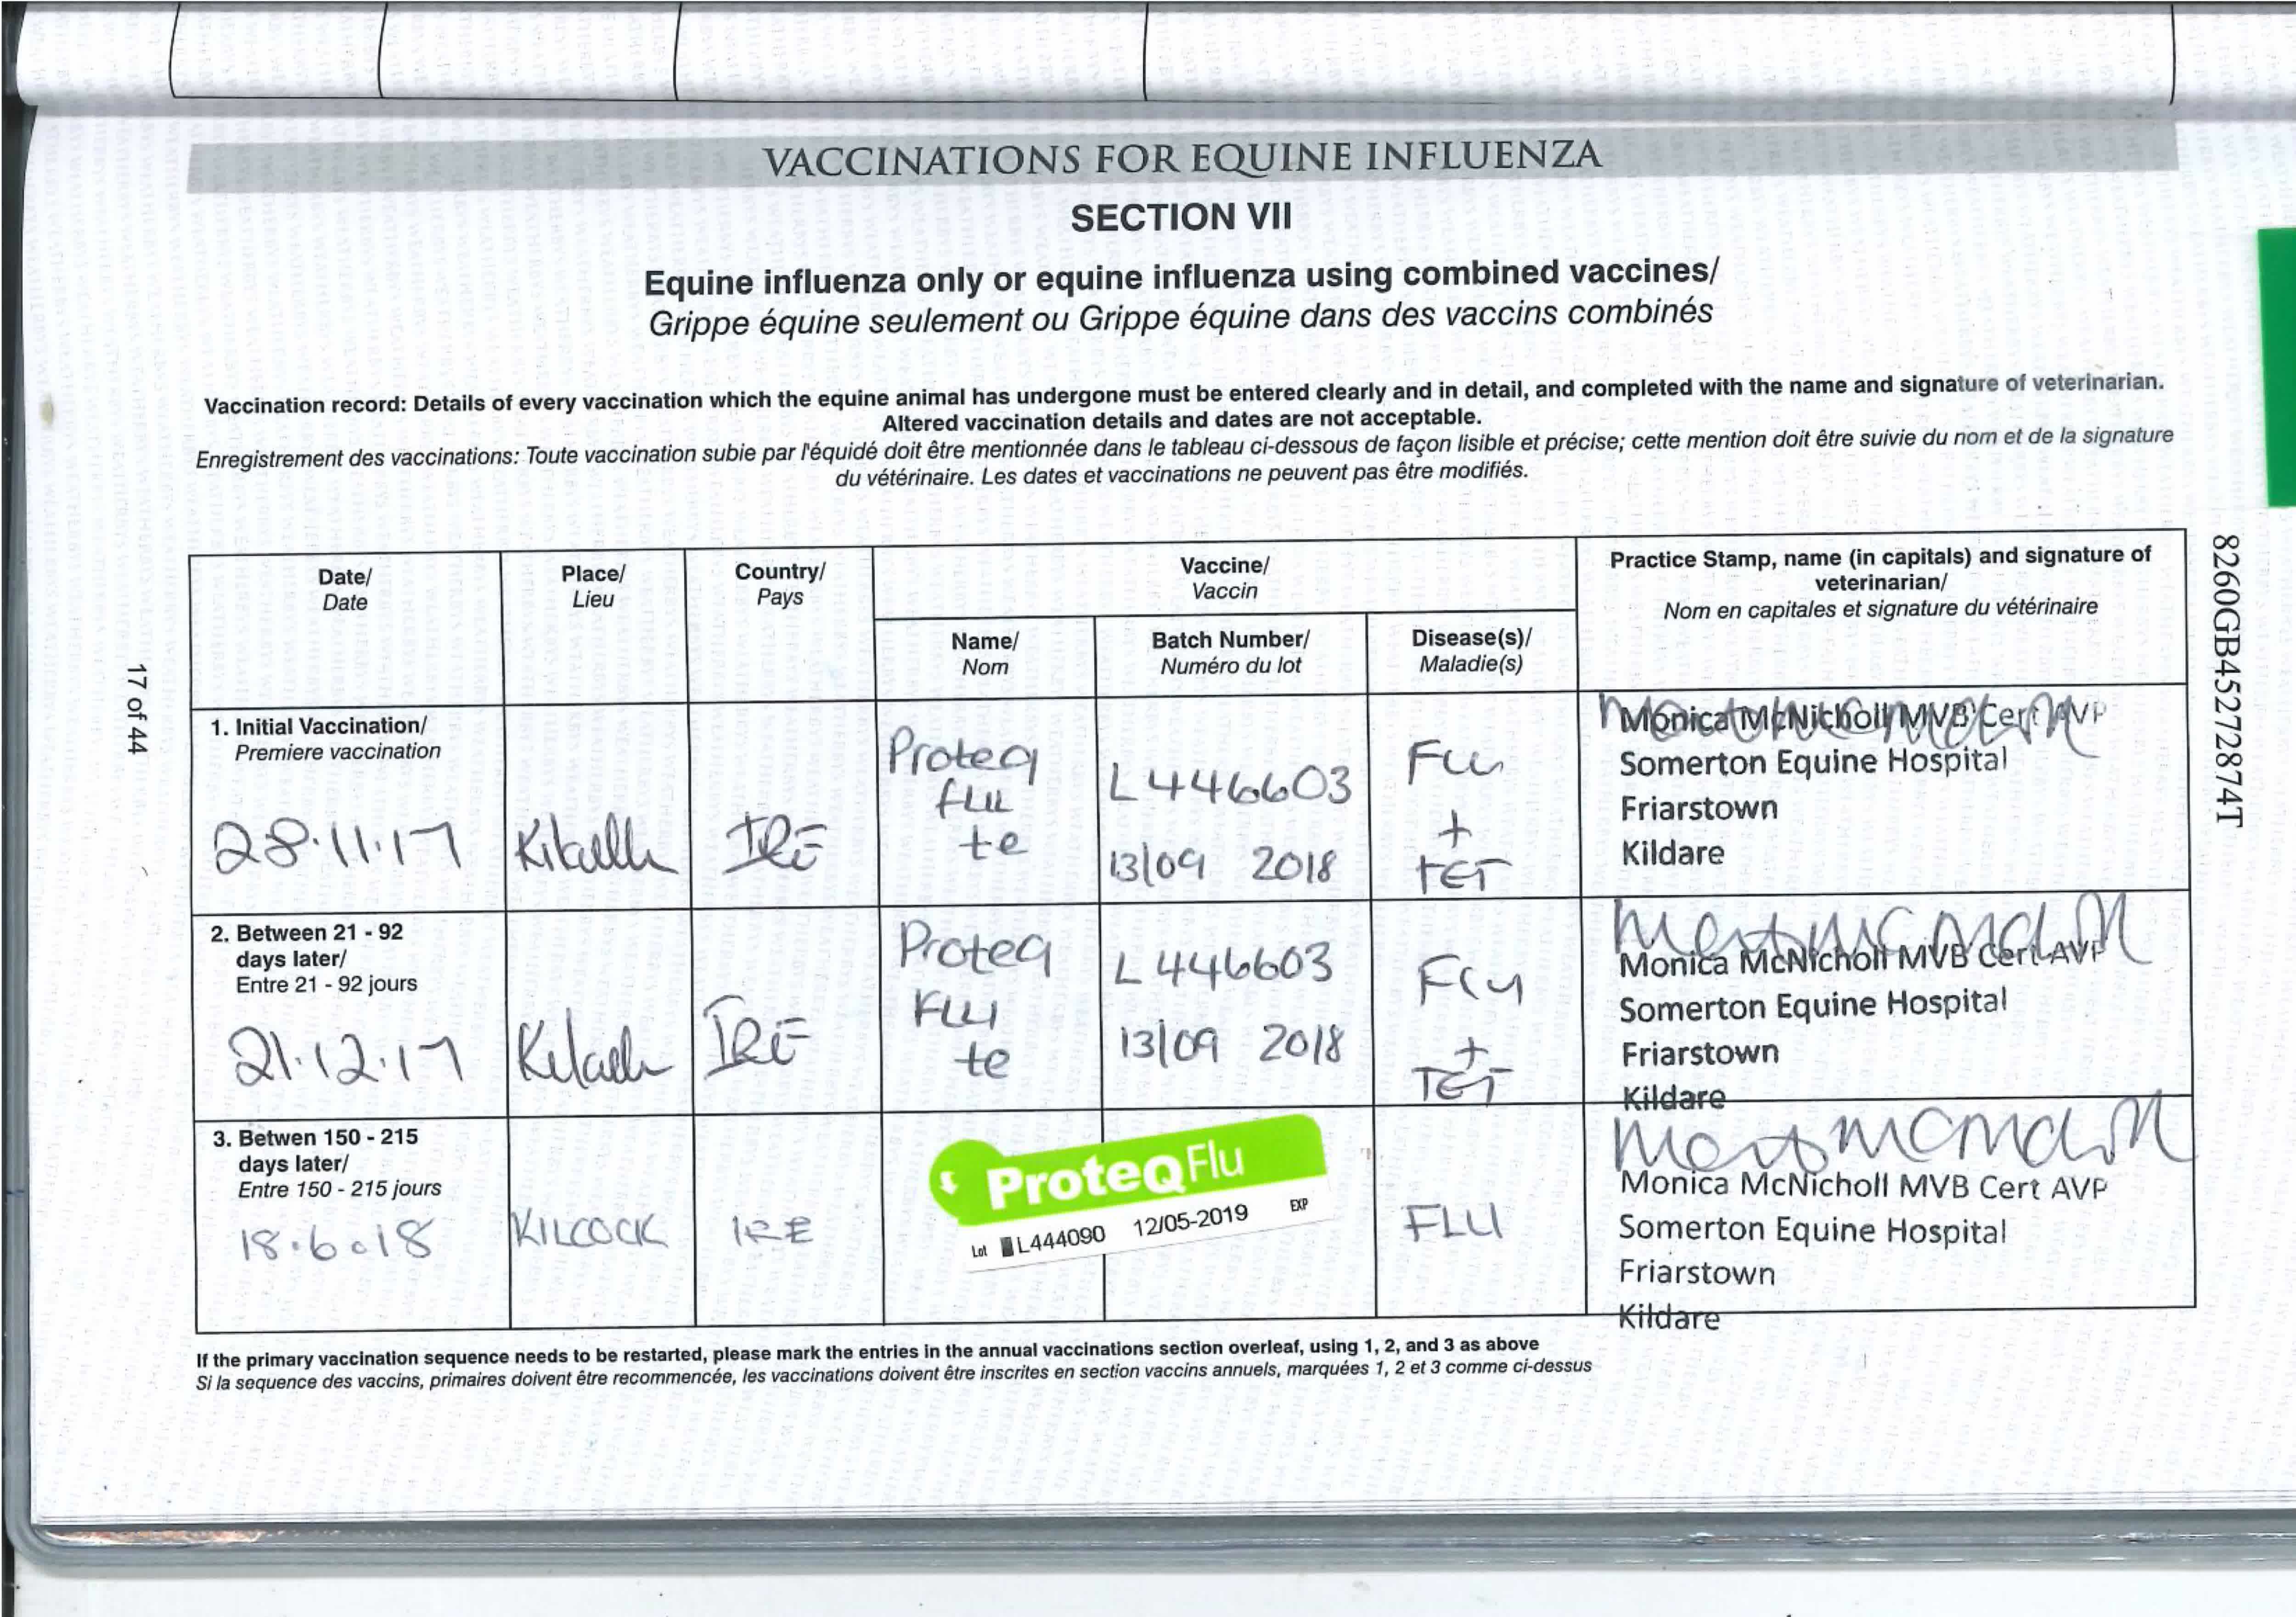 VACCINATIONS FOR EQUINE INFLUENZA
SECTION VII
Equine influenza only or equine influenza using combined vaccines/
Grippe équine seulement ou Grippe équine dans des vaccins combinés
Vaccination record: Details of every vaccination which the equine animal has undergone must be entered clearly and in detail, and completed with the name and signature of veterinarian.
Altered vaccination details and dates are not acceptable.
Enregistrement des vaccinations: Toute vaccination subie par l'équidé doit être mentionnée dans le tableau ci-dessous de façon lisible et précise; cette mention doit être suivie du nom et de la signature
du vétérinaire. Les dates et vaccinations ne peuvent pas être modifiés.
Date/
Date
Place/
Lieu
Country/
Pays
Vaccine/
Vaccin
Name/
Nom
Batch Number/
Numéro du lot
Disease(s)/
Maladie(s)
Practice Stamp, name (in capitals) and signature of
veterinarian/
Nom en capitales et signature du vétérinaire
1. Initial Vaccination/
Premiere vaccination
28.11.17
IRE
Proteq
flu
te
L446603
13/09 2018
Flu
+
TET
Monica McNicholl MVB Cert AVP
Somerton Equine Hospital
Friarstown
Kildare
2. Between 21 - 92
days later/
Entre 21 - 92 jours
21.12.17
IRE
Proteq
FLU
te
L446603
13/09 2018
Flu
+
TET
Monica McNicholl MVB Cert AVP
Somerton Equine Hospital
Friarstown
Kildare
3. Betwen 150 - 215
days later/
Entre 150 - 215 jours
18.6.18
KILCOCK
IRE
ProteqFlu
Lot L444090 12/05-2019 EXP
FLU
Monica McNicholl MVB Cert AVP
Somerton Equine Hospital
Friarstown
Kildare
If the primary vaccination sequence needs to be restarted, please mark the entries in the annual vaccinations section overleaf, using 1, 2, and 3 as above
Si la sequence des vaccins, primaires doivent être recommencée, les vaccinations doivent être inscrites en section vaccins annuels, marquées 1, 2 et 3 comme ci-dessus
17 of 44
8260GB45272874T